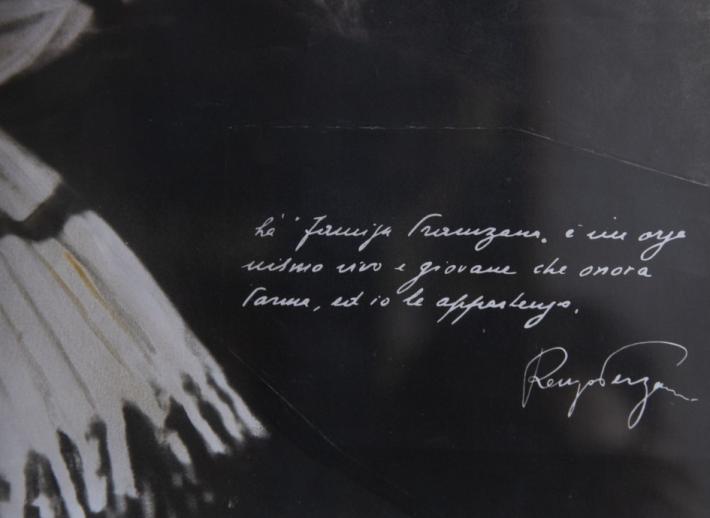 La "Famija Pramzana" è un orga
nismo vivo e giovane che onora
Parma, ed io le appartengo.
Renzo Pezzani